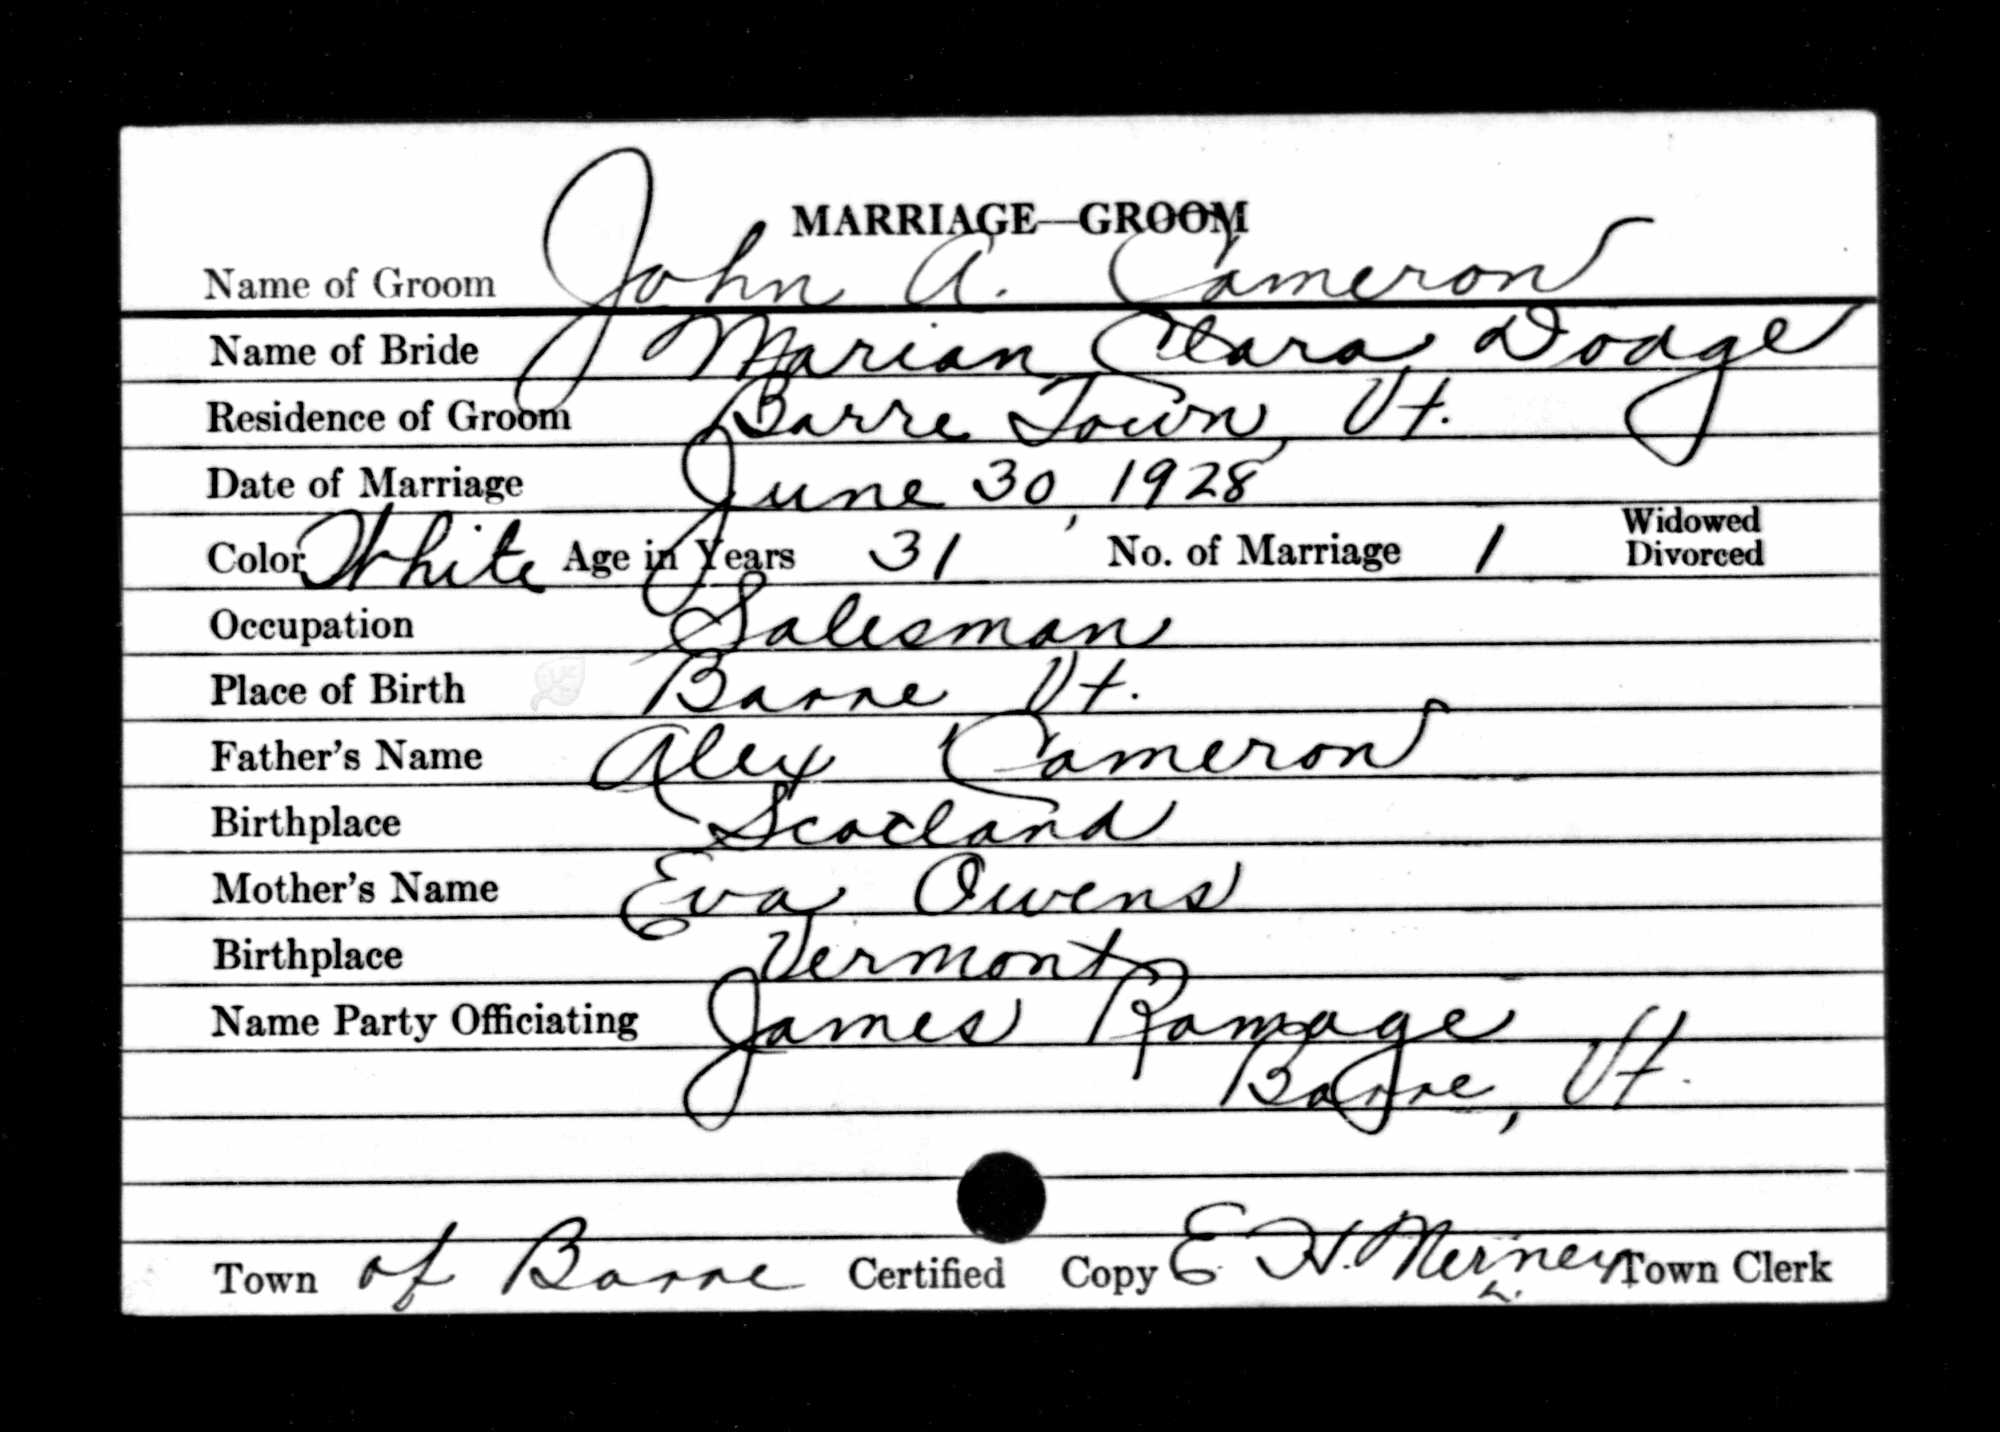 MARRIAGE—GROOM
Name of Groom John A. Cameron
Name of Bride Marian Clara Dodge
Residence of Groom Barre Town, Vt.
Date of Marriage June 30, 1928
Color White Age in Years 31 No. of Marriage 1 Widowed Divorced
Occupation Salesman
Place of Birth Barre Vt.
Father's Name Alex Cameron
Birthplace Scotland
Mother's Name Eva Owens
Birthplace Vermont
Name Party Officiating James Ramage
Barre, Vt.
Town of Barre Certified Copy E. H. Merney Town Clerk